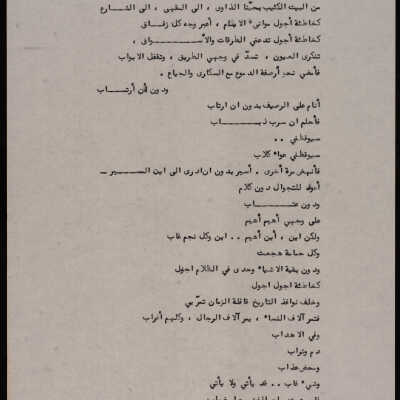 من البيت الكئيب بحبّنا الذاوي ، الى المقهى ، الى الشـــارع
كخاطئة أجول موانيء الايتام ، أعبر وجه كل زقـــاق
كخاطئة أجول تدعني الطرقات والأســــواق ،
تنكرى العيون ، تسدّ في وجهي الطريق ، وتقفل الابواب
فأمضي نحو أرصفة الدموع مع السكارى والجياع .
ودون أن أرتـــــاب
أنام على الرصيف بدون ان ارتاب
فأحلم ان سرب ذيـــــاب
سيوقظني . .
سيوقظني عواء كلاب
فأنهض مرة أخرى . أسير بدون ان ادرى الى اين المســـير ــ
أعود للتجوال دون كلام
ودون عتـــــاب
على وجهي أهيم أهيم
ولكن اين ، أين أهيم . . اين وكل نجم غاب
وكل حمامة هجعت
ودون بقية الاشياء وحدى في الظلام اجول
كخاطئة اجول اجول
وخلف نوافذ التاريخ قافلة الزمان تمرّ بي
فتمر آلاف النساء ، يمر آلاف الرجال ، وكلهم أغراب
وفي الاهداب
دم وتراب
ومحض عذاب
وشيء غاب . . قد يأتي ولا يأتي